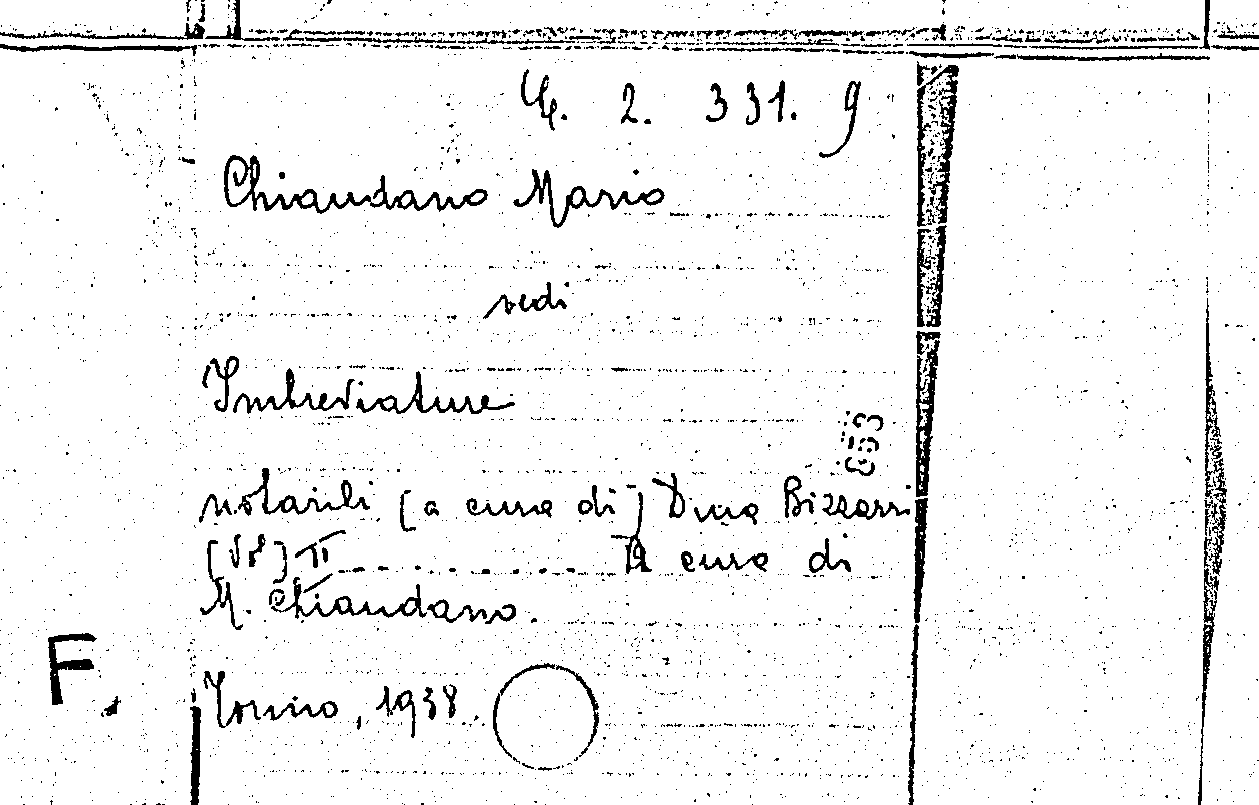 4. 2. 331. 9
Chiaudano Mario
vedi
Imbreviature
notarili [a cura di] Dina Bizzarri
[Vol] II - . . . . . . . . . A cura di
M. Chiaudano.
F.
Torino, 1938.